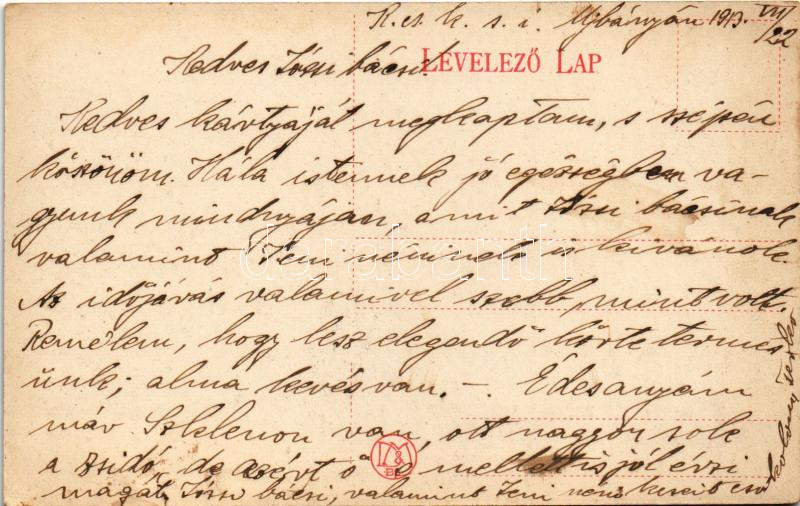 R. cs. k. s. i. Ujbányán 1913. VII/22
LEVELEZŐ LAP
Kedves Józsi bácsi!
Kedves kártyáját megkaptam, s szépen
köszönöm. Hála istennek jó egészségben va-
gyunk mindnyájan, amit Józsi bácsinak
valamint Teni néninek is kivánok.
Az időjárás valamivel szebb, mint volt.
Remélem, hogy lesz elegendő körte termés
ünk; alma kevés van. – Édesanyám
már Szklenon van, ott nagyon sok
a zsidó, de azért ő is mellettis jól érzi
magát. Józsi bácsi, valamint Teni néni
darabanth